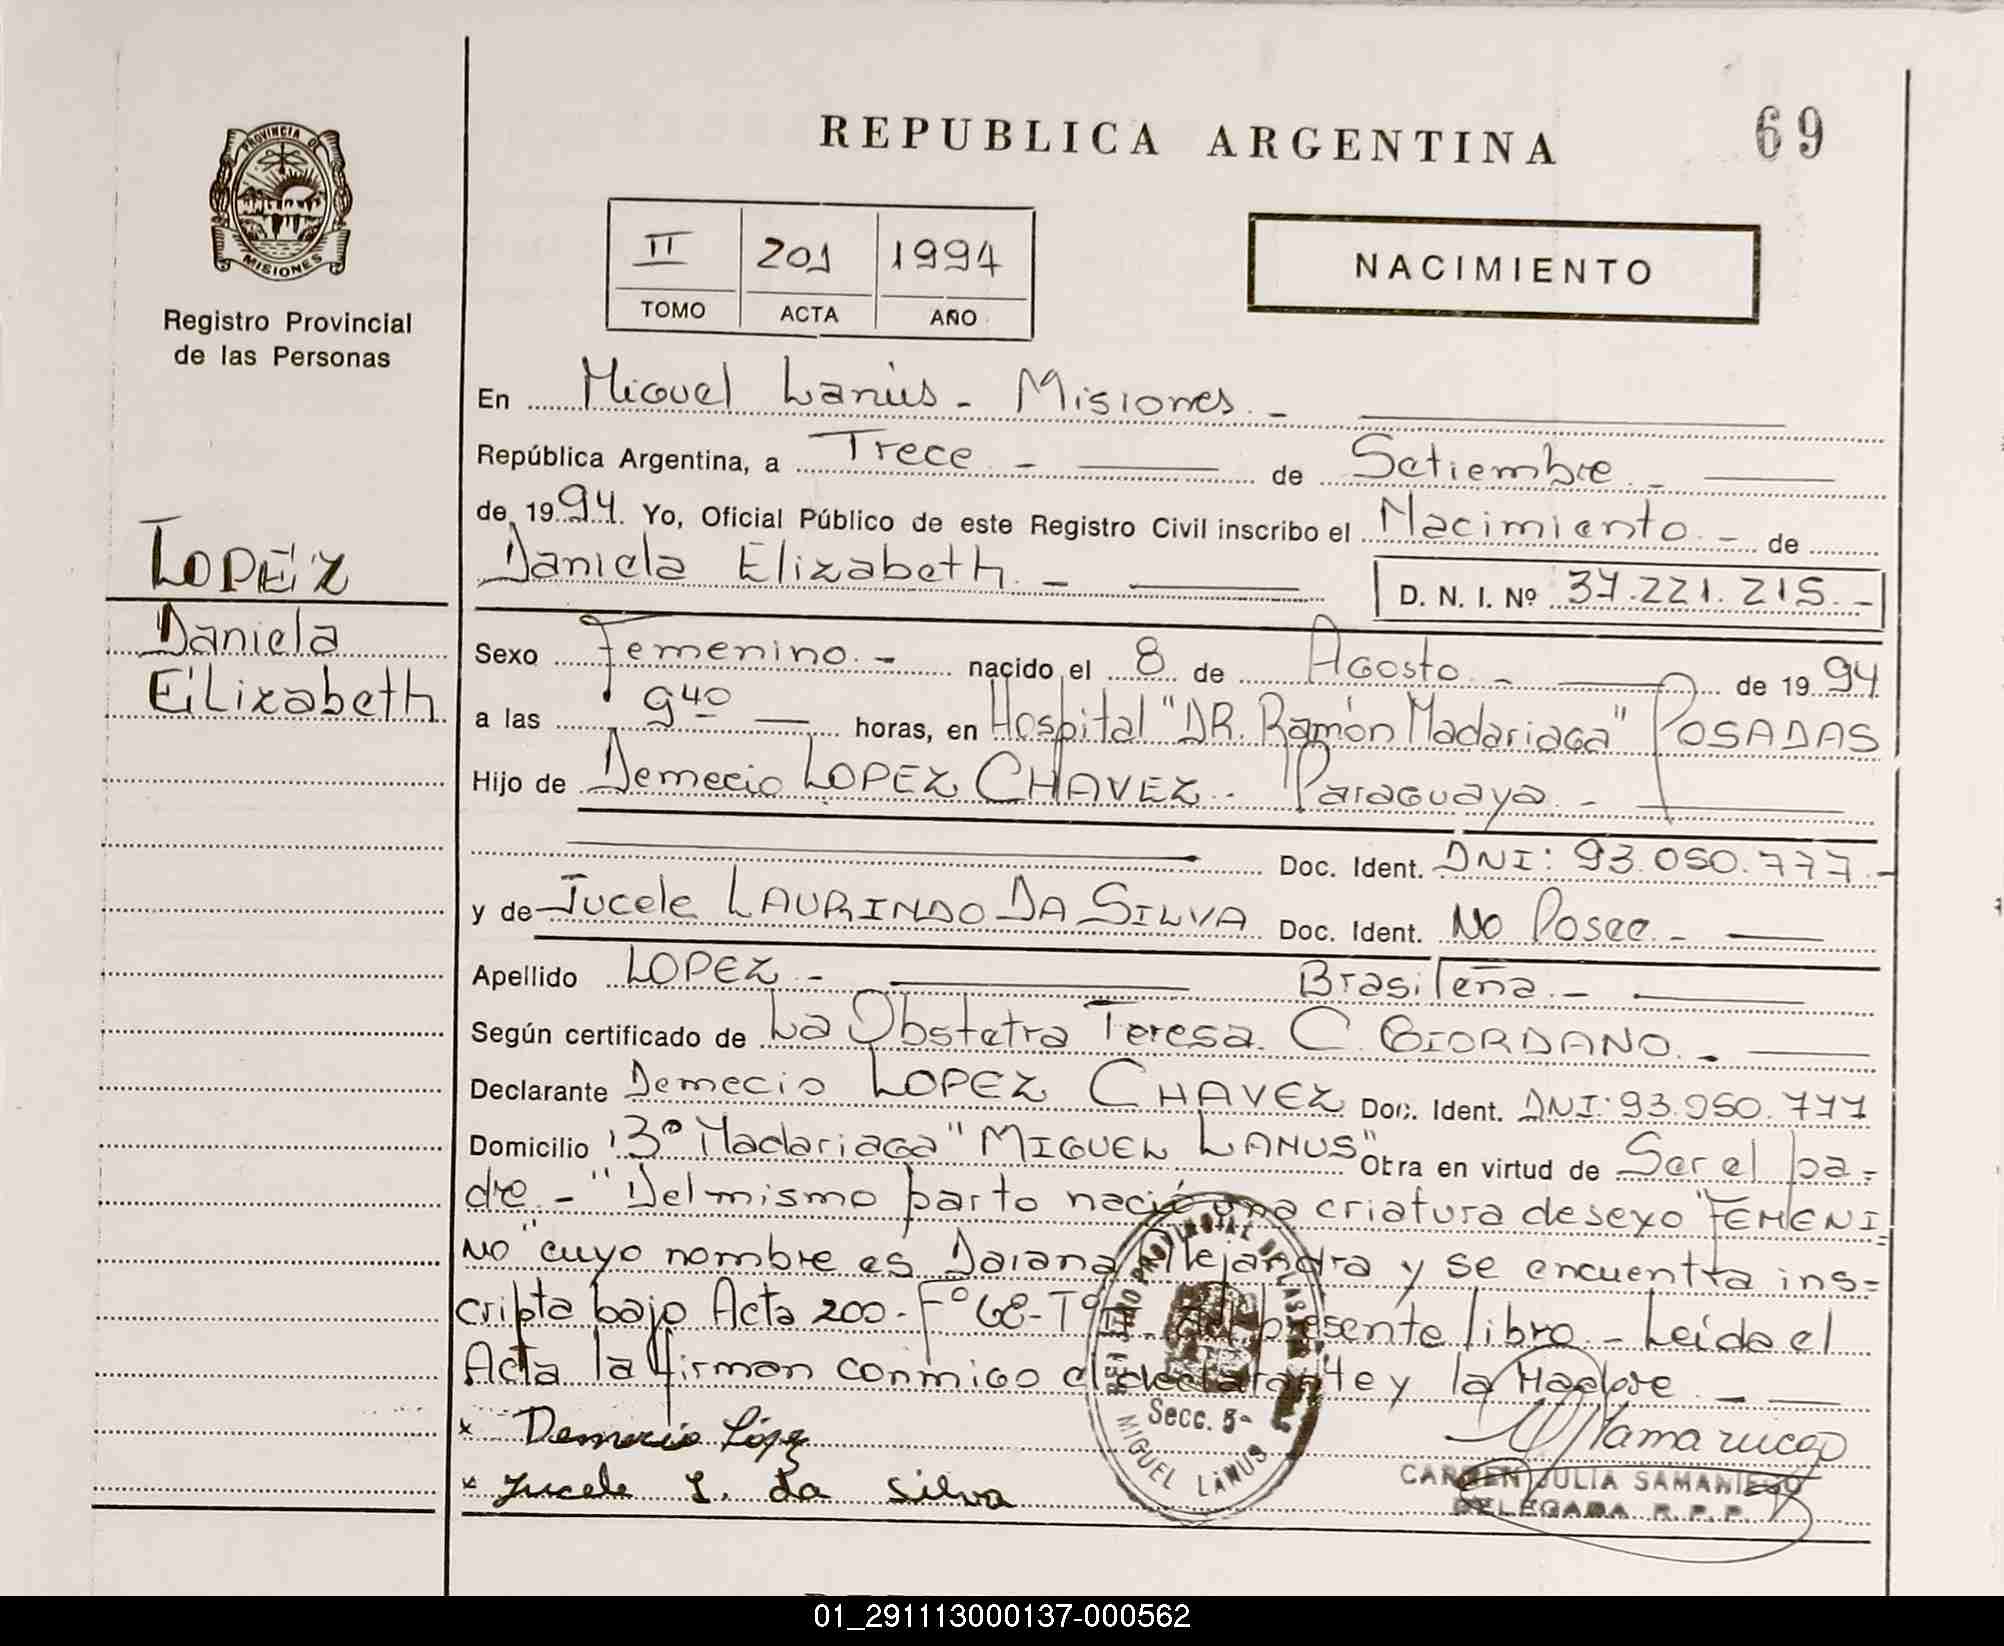 REPUBLICA ARGENTINA
69
PROVINCIA DE
MISIONES
Registro Provincial
de las Personas
II 201 1994
TOMO ACTA AÑO
NACIMIENTO
En Miguel Lanús - Misiones. -
República Argentina, a Trece - de Setiembre. -
de 1994. Yo, Oficial Público de este Registro Civil inscribo el Nacimiento. - de
Daniela Elizabeth. - D. N. I. Nº 37.221.215. -
LOPEZ
Daniela
Elizabeth
Sexo Femenino. - nacido el 8 de Agosto. - de 1994
a las 9 40 horas, en Hospital "DR. Ramón Madariaga" POSADAS
Hijo de Demecio LOPEZ CHAVEZ. - Paraguaya. -
Doc. Ident. DNI: 93.050.777. -
y de Jucele LAURINDO DA SILVA Doc. Ident. No Posee. -
Apellido LOPEZ. - Brasileña. -
Según certificado de La Obstetra Teresa. C. GIORDANO. -
Declarante Demecio LOPEZ CHAVEZ Doc. Ident. DNI: 93.050.777
Domicilio 3º Madariaga "MIGUEL LANUS" Otra en virtud de Ser el pa=
dre. - "Del mismo parto nació una criatura de sexo "FEMENI=
NO" cuyo nombre es Daiana Alejandra y se encuentra ins=
cripta bajo Acta 200 - Fº 68 - Tº presente libro. - Leída el
Acta la firman conmigo el declarante y la Madre. -
x Demecio López
x Jucele L. da Silva
Secc. 5-
MIGUEL LANUS
CARMEN JULIA SAMANIEGO
DELEGADA R. P. P.
01_291113000137-000562